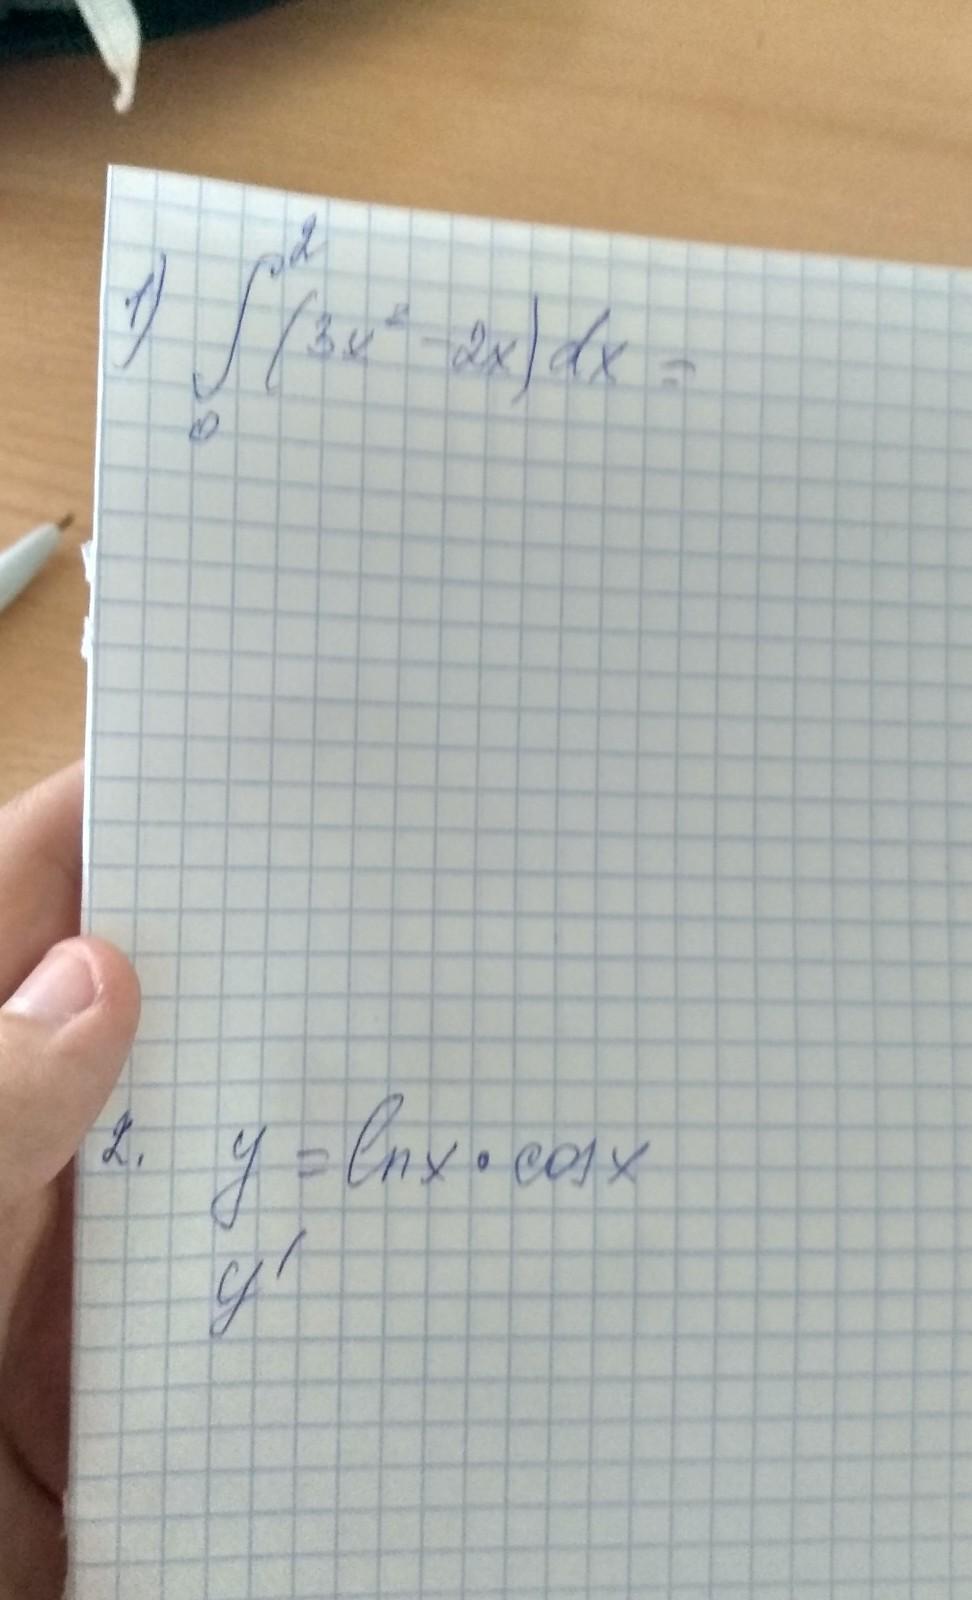 1) ∫₀² (3x² - 2x) dx =
2. y = lnx · cosx
y'